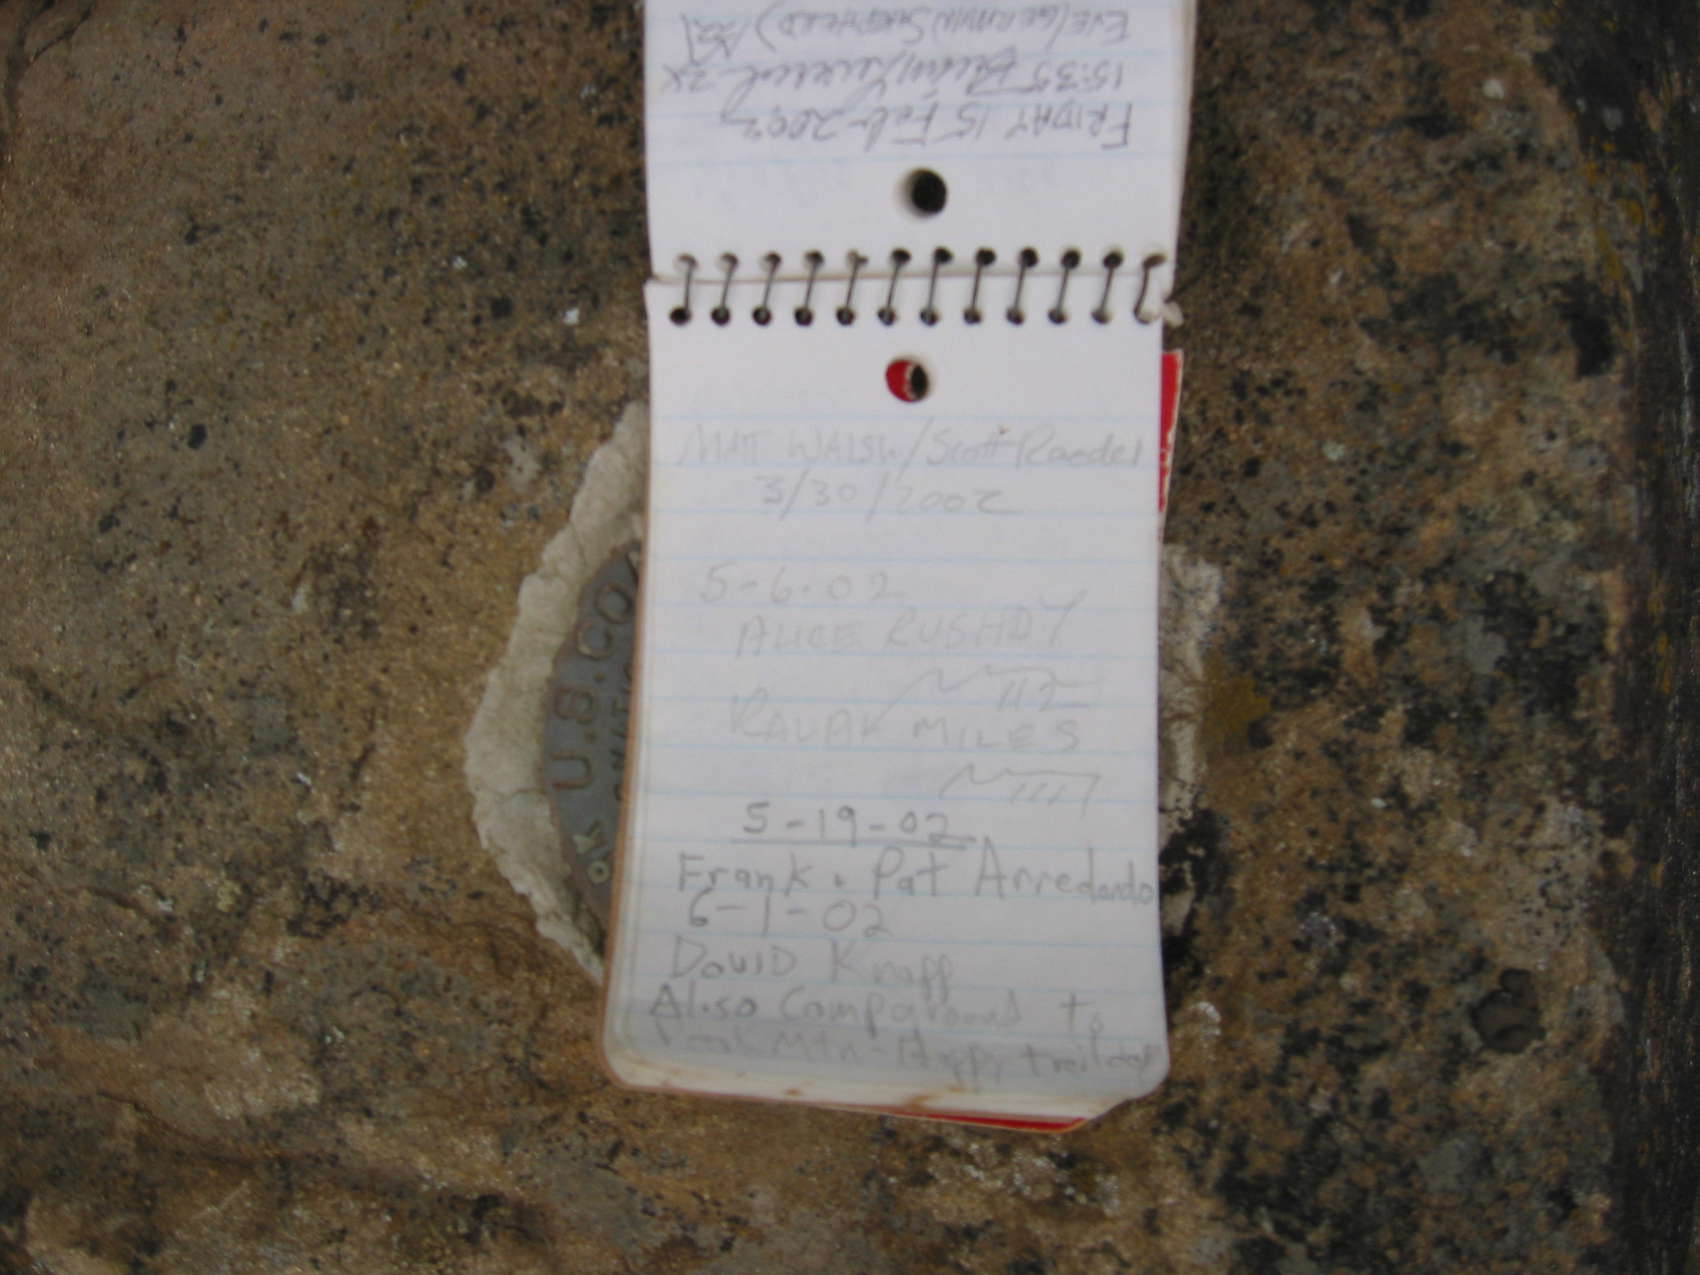 FRIDAY 15 Feb 2002
15:35 2X
EVE (GERMAN SHEPHERD)
MATT WALSH/Scott Raedel
3/30/2002
5-6-02
ALICE RUSHDY
MILES
5-19-02
Frank . Pat Arredondo
6-1-02
DaviD Knapp
Also Campground to
Mtn-Happy trails
U.S.CO